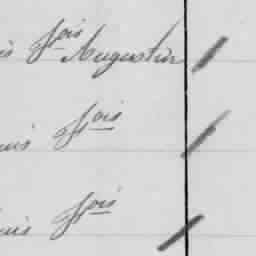 is fois Augustin
uis fois
uis fois